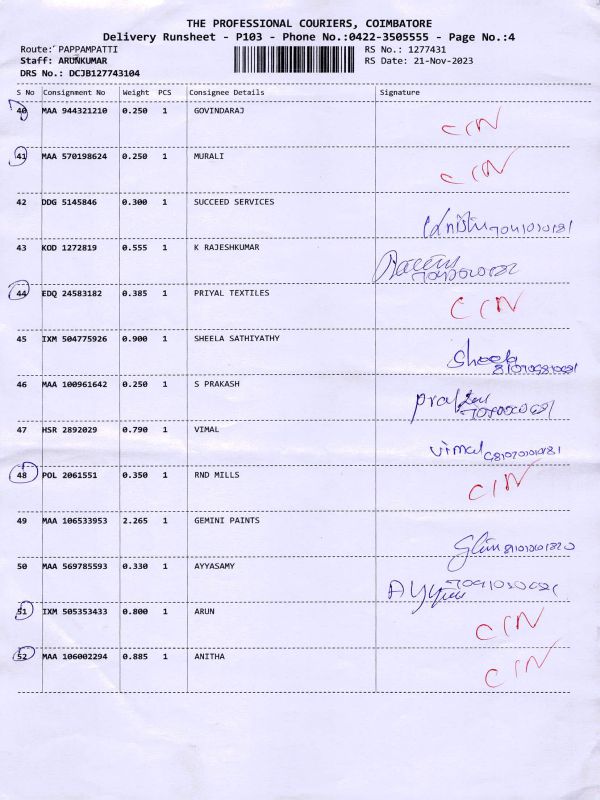 THE PROFESSIONAL COURIERS, COIMBATORE
Delivery Runsheet - P103 - Phone No.:0422-3505555 - Page No.:4
Route: PAPPAMPATTI RS No.: 1277431
Staff: ARUNKUMAR RS Date: 21-Nov-2023
DRS No.: DCJB127743104
S No Consignment No Weight PCS Consignee Details Signature
40 MAA 944321210 0.250 1 GOVINDARAJ CIN
41 MAA 570198624 0.250 1 MURALI CIN
42 DDG 5145846 0.300 1 SUCCEED SERVICES
43 KOD 1272819 0.555 1 K RAJESHKUMAR
44 EDQ 24583182 0.385 1 PRIYAL TEXTILES CIN
45 IXM 504775926 0.900 1 SHEELA SATHIYATHY Sheela
46 MAA 100961642 0.250 1 S PRAKASH
47 HSR 2892029 0.790 1 VIMAL Vimal
48 POL 2061551 0.350 1 RND MILLS CIN
49 MAA 106533953 2.265 1 GEMINI PAINTS
50 MAA 569785593 0.330 1 AYYASAMY
51 IXM 505353433 0.800 1 ARUN CIN
52 MAA 106002294 0.885 1 ANITHA CIN